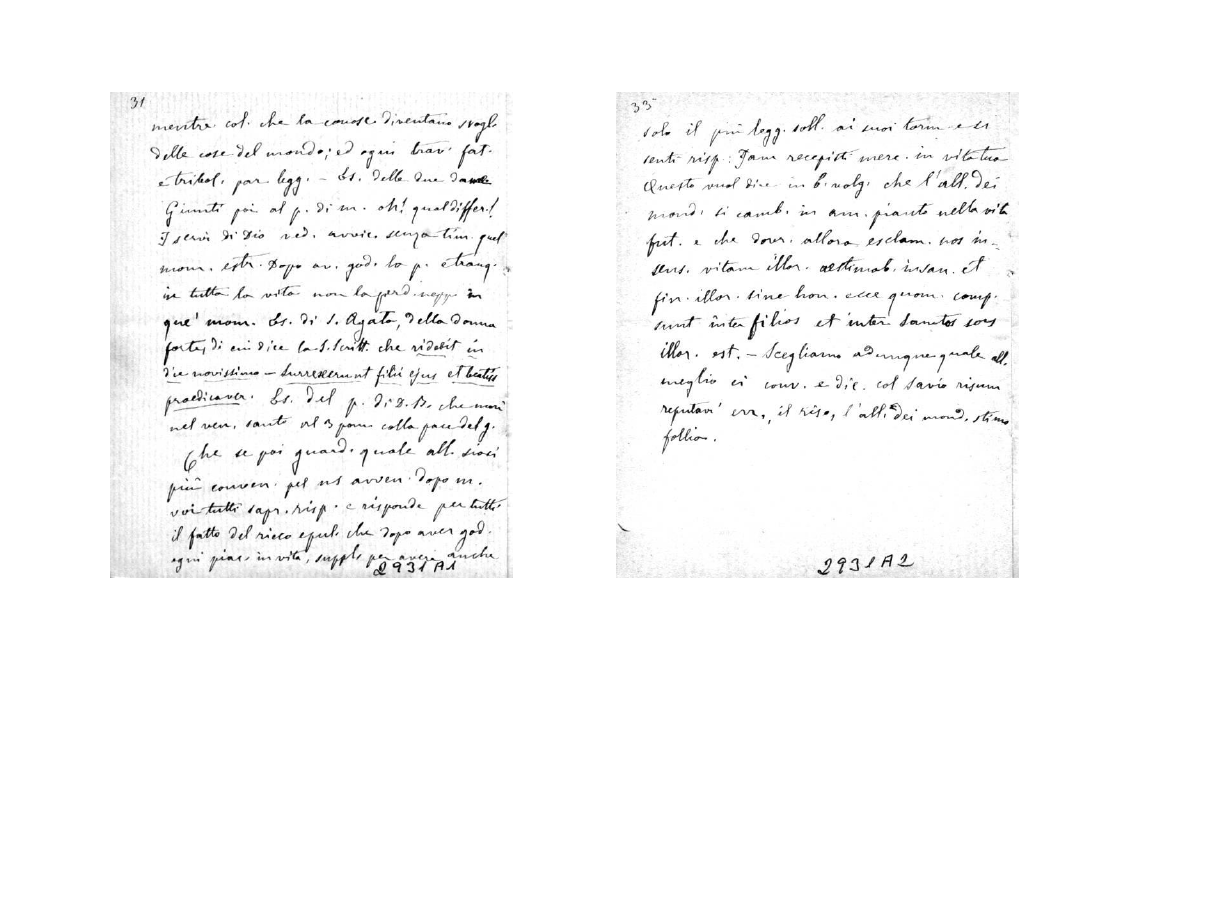 31
mentre col. che la conosc. diventano svogl.
delle cose del mondo; ed ogni trav. fat.
e tribol. par legg. – Es. delle due dame
Giunti poi al p. di m. oh! qual differ.!
I servi di Dio ved. avvic. senza tim. quel
mom. estr. Dopo av. god. la p. e tranq.
in tutta la vita non la perd. nepp. in
que' mom. Es. di S. Agata, della donna
forte, di cui dice la S. Scritt. che ridebit in
die novissimo – Surrexerunt filii ejus et beatiss
praedicaver. Es. del p. di D. B. che morì
nel ven. santo ore 3 pom. colla pace del g.
Che se poi guard. quale all. siasi
più conven. pel ns avven. dopo m.
voi tutti sapr. risp. e risponde per tutti
il fatto del ricco epul. che dopo aver god.
ogni piac. in vita, suppl. per avere anche
2931A1
33
solo il più legg. soll. ai suoi torm. e si
sentì risp: Jam recepisti merc. in vita tua
Questo vuol dire in l. volg. che l'all. dei
mond. si camb. in am. pianto nella vita
fut. e che dovr. allora esclam. nos in-
sens. vitam illor. aestimab. insan. et
fin. illor. sine hon. ecce quom. comp.
sunt inter filios et inter Sanctos sors
illor. est. – Scegliamo adunque quale all.
meglio ci conv. e dic. col Savio risum
reputavi err., il riso, l'all. dei mond. stimo
follia.
2931A2